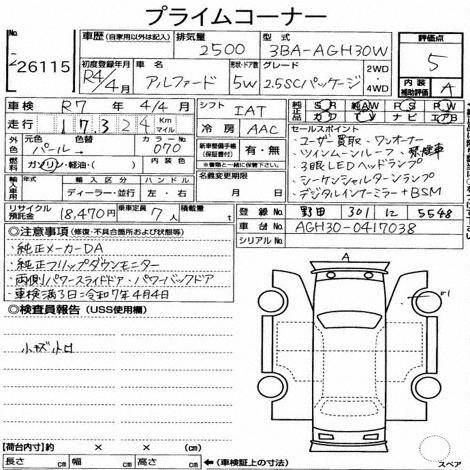 プライムコーナー
26115
車歴 (自家用以外は記入)
排気量
2500
型式
3BA-AGH30W
評価点
5
初度登録年月
R4年4月
車名
アルファード
形状・ドア数
5W
グレード
2.5SCパッケージ
2WD
4WD
内装
補助評価
A
車検 R7年 4/4月
シフト
IAT
純正品
SR AW PS PW
カワ TV ナビ エアB
走行 17,324 Km マイル
冷房 AAC
セールスポイント
・ユーザー買取・ワンオーナー
・ツインムーンルーフ
・3眼LEDヘッドランプ
・シーケンシャルターンランプ
・デジタルインナーミラー+BSM
外色
元色
パール
色替
カラーNo.
070
新車整備手帳
(保証書付)
有・無
※書類と一緒に提出して下さい。
燃料 ガソリン・軽油・( )
内装色
名義変更期限
月 日
輸入車用
輸入区分
ハンドル
ディーラー・並行
左・右
リサイクル預託金
18,470円
乗車定員
7人
積載量
t
登録No. 野田 301 に 5548
車台No. AGH30-0417038
シリアルNo.
◎注意事項 (修復・不具合箇所および状態等)
・純正メーカーDA
・純正フリップダウンモニター
・両側パワースライドドア・パワーバックドア
・車検満了日=令和7年4月4日
◎検査員報告 (USS使用欄)
小キズ小凹
A
スペア
【荷台内寸】 約 × ×
長さ cm 幅 cm 高さ cm
(車検証上の寸法)